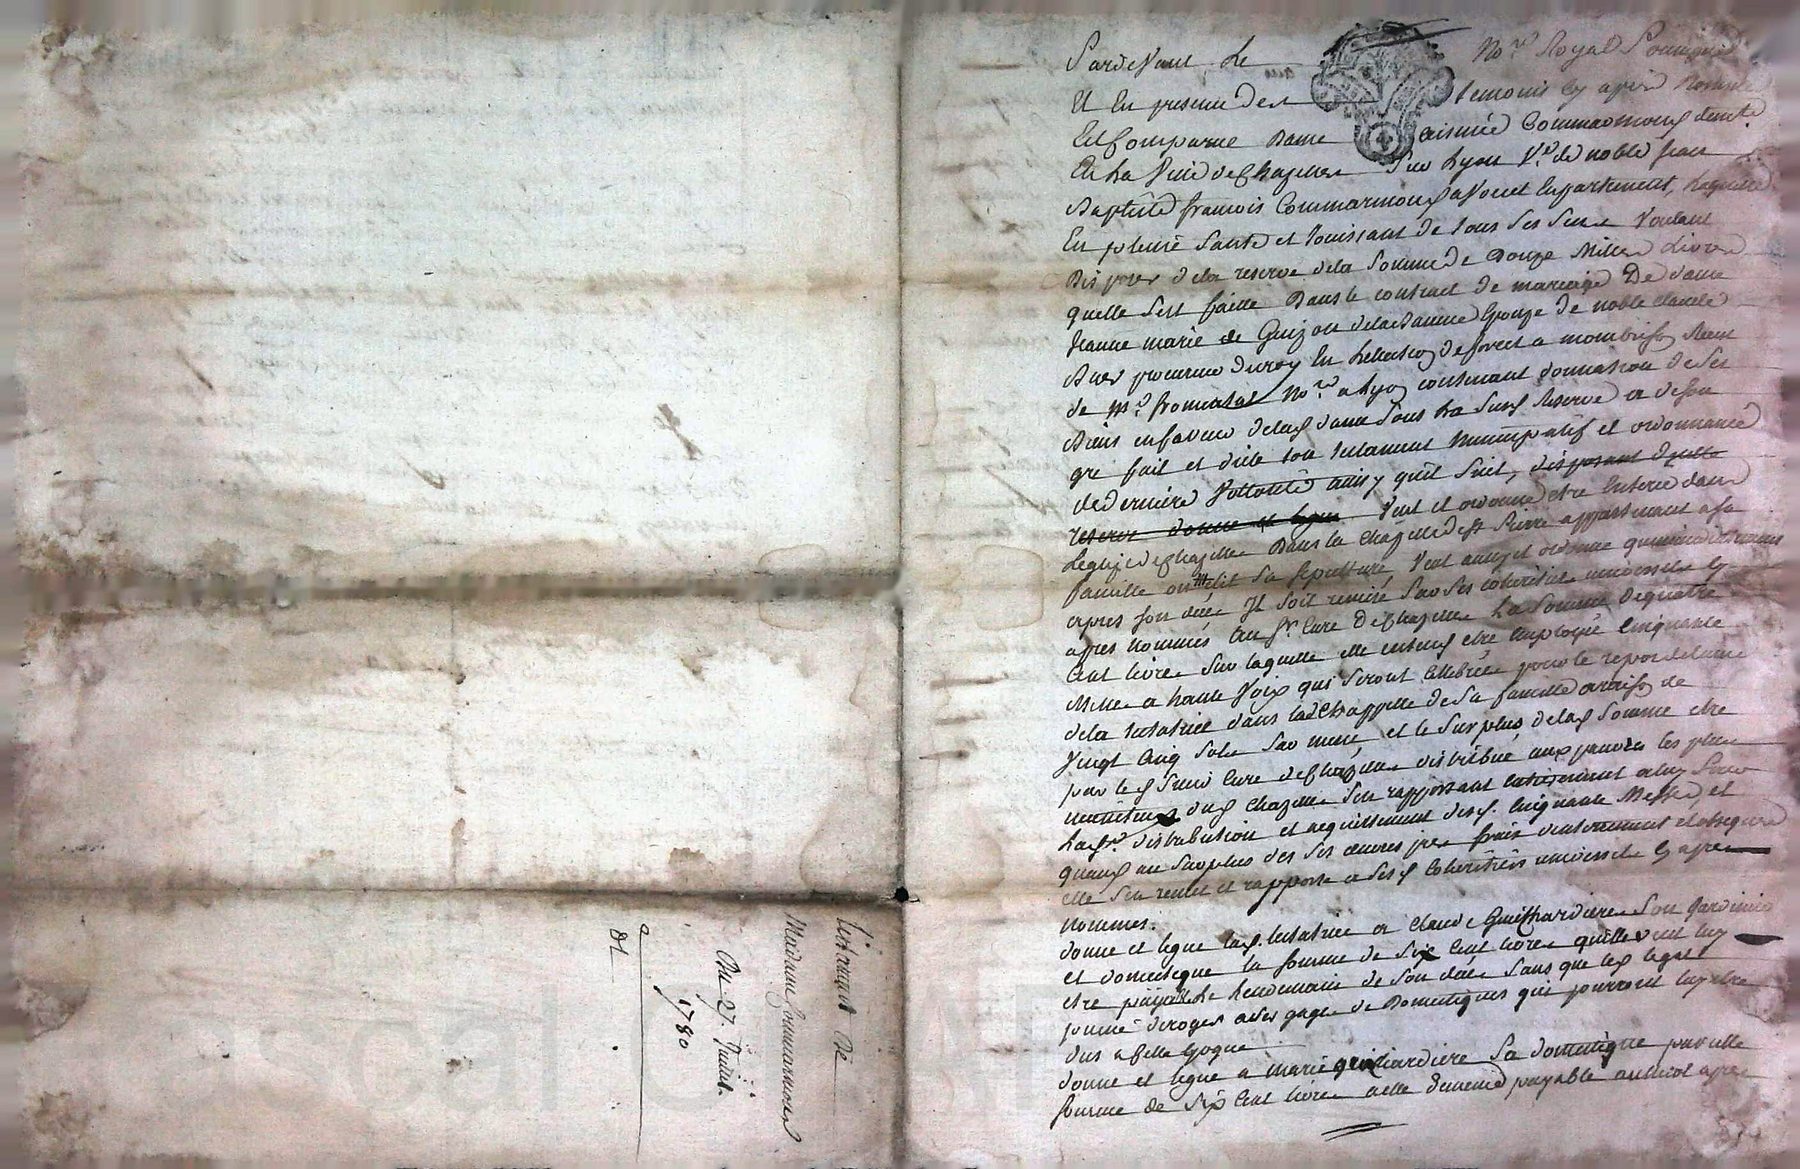 Pardevant Le Nore Royal Soussigné
Et En presence des temoins Cy apres Nommés
Est Comparue Dame aimée Commarmoux demte
En La Ville de Chazelles Sur Lyon Ve de noble Jean
Baptiste francois Commarmoux avocat En parlement, Laquelle
En pleine Santé et Jouissant de tous Ses Sens Voulant
Disposer de la reserve de la Somme de Douze Mille Livres
quelle sest faitte Dans le contract de mariage De dame
Jeanne marie de Epouze de noble Claude
procureur du roy En Lelection de forest a montbrison
de Me Nore a Lyon contenant donnation de Ses
Biens en faveur de lad dame Sous La Susd Reserve a de Son
gré fait et dicté Son testament Nuncupatif et ordonnance
de derniere Volonté ainsy quil Suit, disposant dicelle
reserve donne et legue Veut et ordonne etre Enterée dans
Leglize de Chazelles Dans la Chapelle de St Pierre appartenant a Sa
famille ou elle elit Sa Sepulture Veut aussy et ordonne
apres Son deces Il Soit remis Par Ses coheritiers universels Cy
apres Nommés au Sr Curé De Chazelles La Somme de quatre
Cent livres Sur laquelle elle entend etre Employé Cinquante
Messes a haute Voix qui Seront Celebrées pour le repos de lame
de la testatrice dans la Chappelle de Sa famille a raison de
Vingt Cinq Sols Par messe et le Surplus de lad Somme etre
par led Sieur Curé de Chazelles distribué aux pauvres les plus
necessiteux dud Chazelles Sen rapportant entierement aud Sieur
La ditte distribution et acquittement desd. Cinquante Messes, et
quand au Surplus des Ses œuvres pies frais denterrement et obseques
elle Sen remet et rapporte a Sesd Coheritiers universels Cy apres
Nommés.
donne et legue lad. testatrice a Claude Guilhardiere Son Jardinier
et domestique la Somme de Six Cent livres quelle veut luy
etre payable Le Lendemain de Son deces Sans que led legat
puisse deroger a Ses gages de Domestiques qui pourront luy etre
dus a Cette Epoque
donne et legue a marie guilhardiere Sa domestique pareille
Somme de Six Cent livres a elle payable aussitot apres
testament de
Madame Commarmoux
Du 27. Juillet
1780